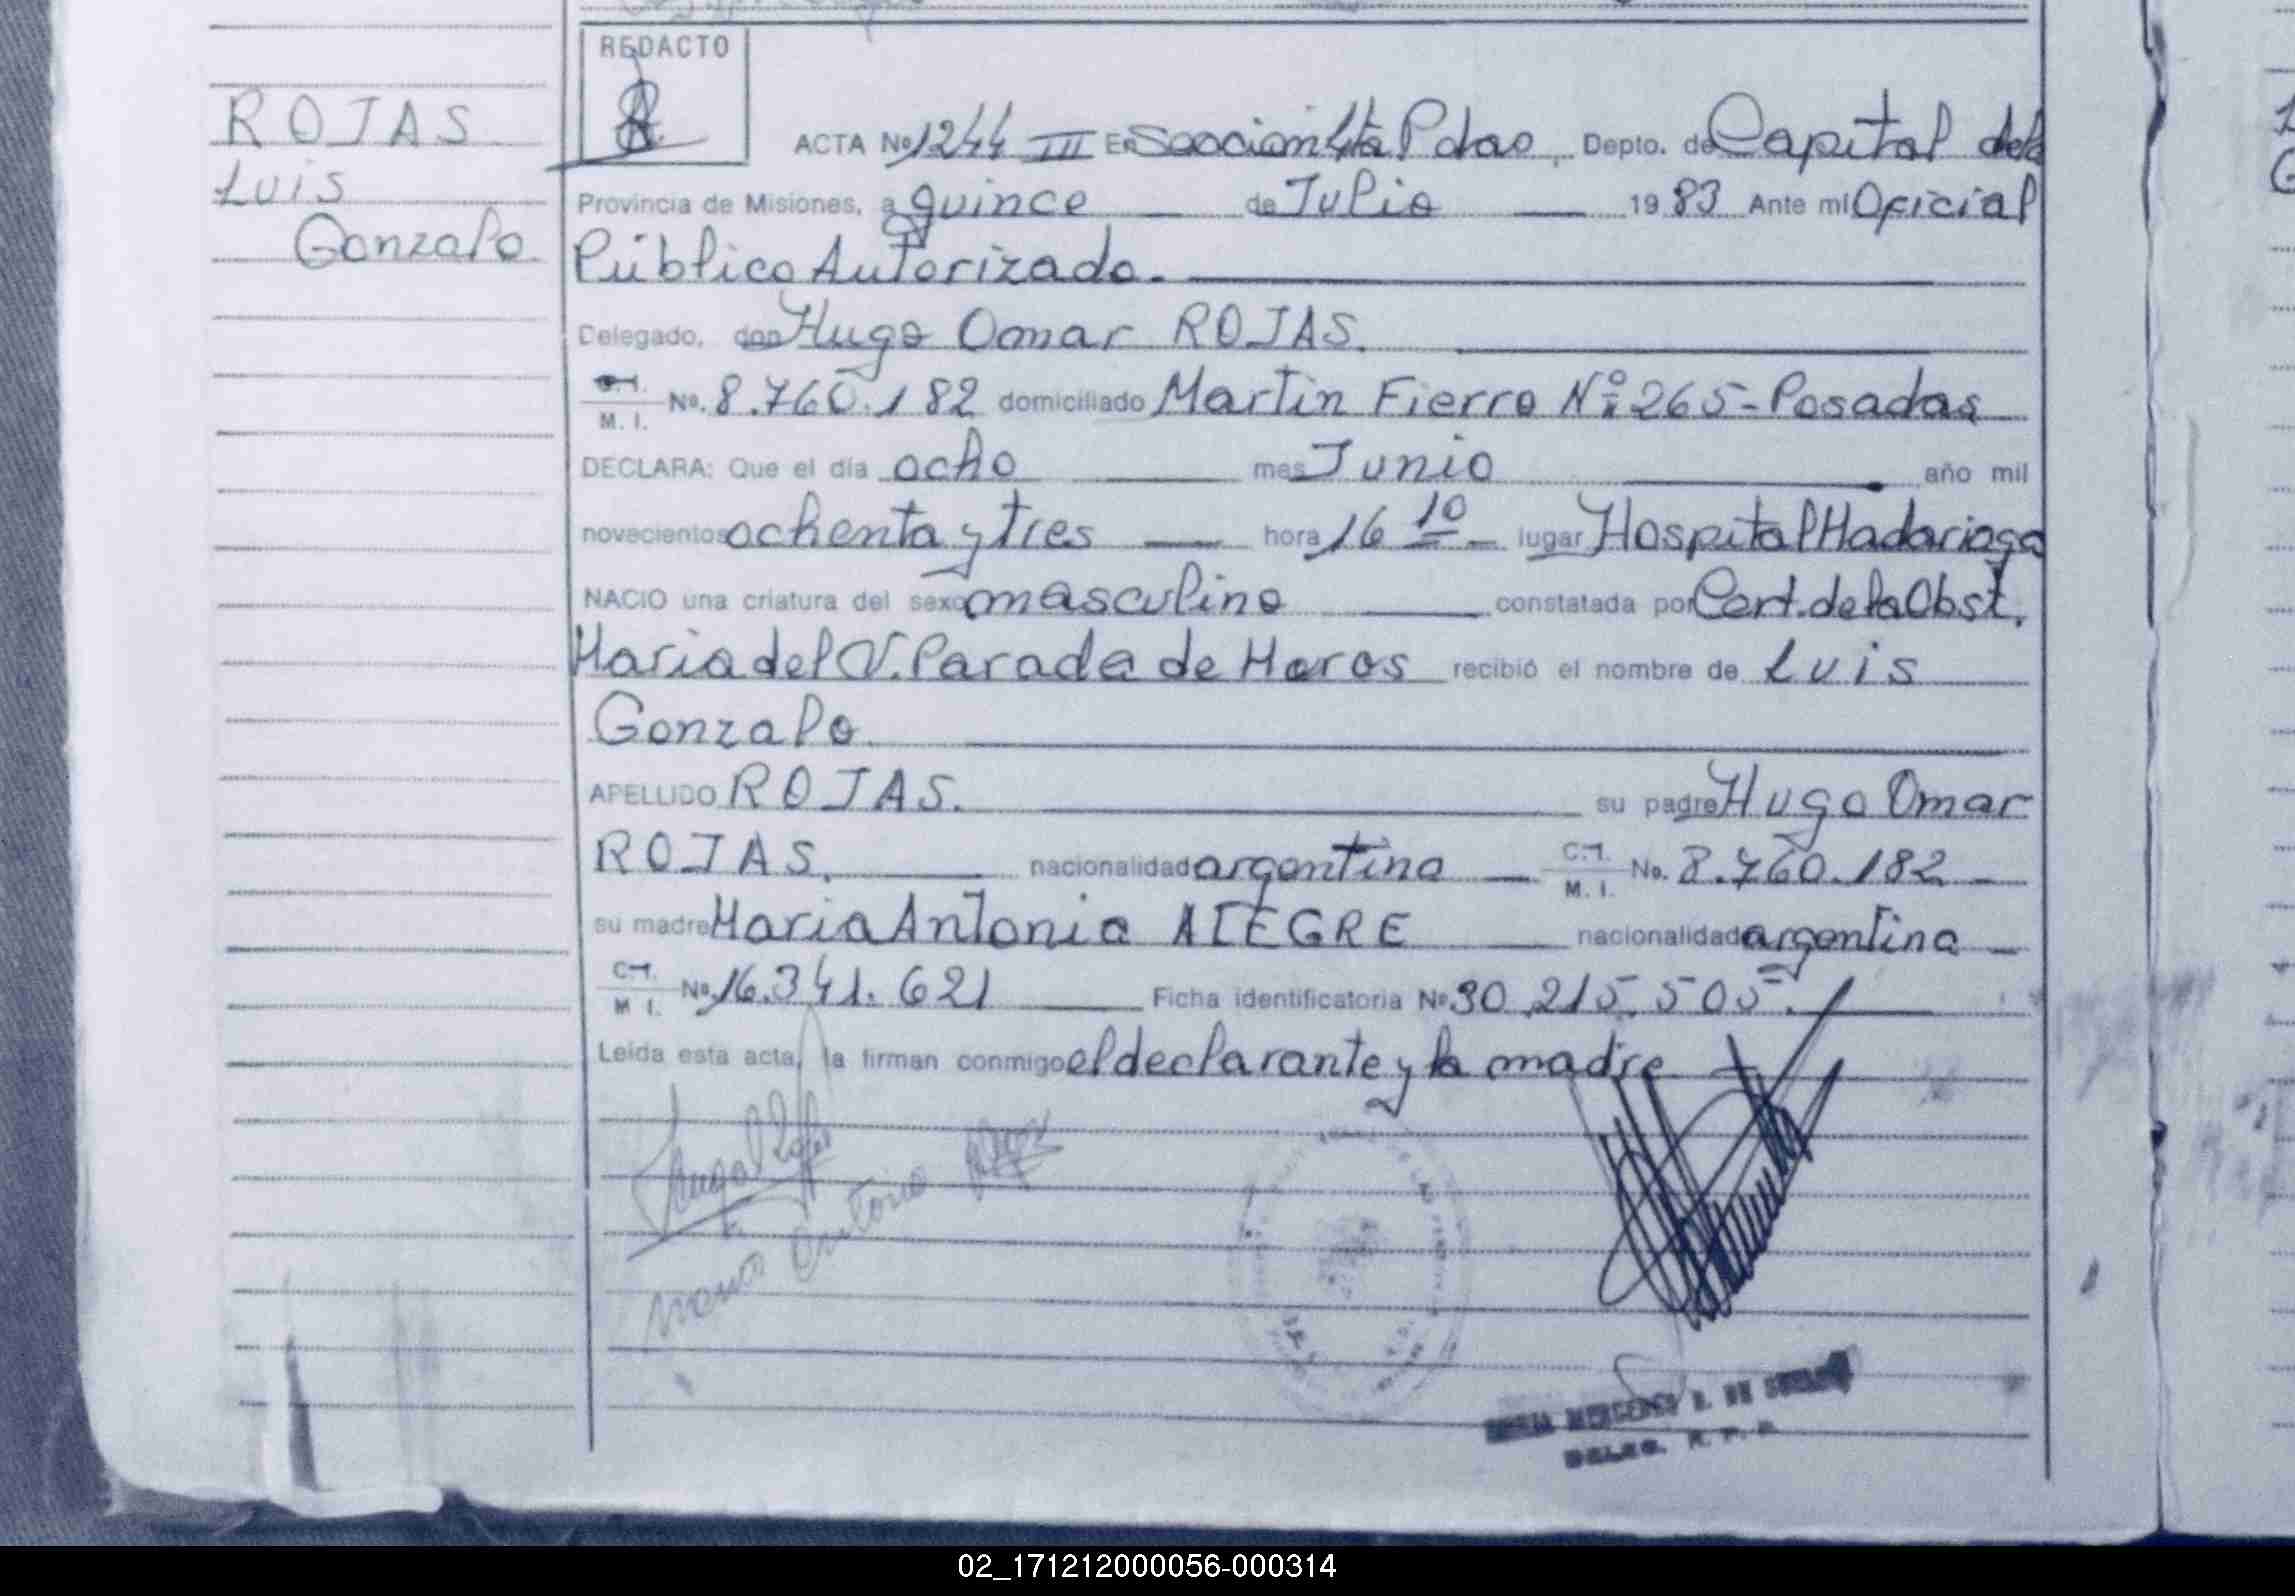 REDACTO
ROJAS
Luis
Gonzalo
ACTA Nº 1244 III En Sección 4ta Pdas, Depto. de Capital de la
Provincia de Misiones, a quince de Julio 1983 Ante mí Oficial
Público Autorizado.
Delegado, don Hugo Omar ROJAS.
C.I. M. I. Nº. 8.760.182 domiciliado Martín Fierro Nº 265-Posadas
DECLARA: Que el día ocho mes Junio año mil
novecientos ochenta y tres hora 16 10 lugar Hospital Madariaga
NACIO una criatura del sexo masculino constatada por Cert. de la Obst.
Maria del V. Parada de recibió el nombre de Luis
Gonzalo
APELLIDO ROJAS. su padre Hugo Omar
ROJAS. nacionalidad argentina C.I. M. I. No. 8.760.182
su madre Maria Antonia ALEGRE nacionalidad argentina
C.I. M I. Nº 16.341.621 Ficha identificatoria Nº 30.215.505.
Leída esta acta, la firman conmigo el declarante y la madre
DELEG. R. P. P.
02_171212000056-000314